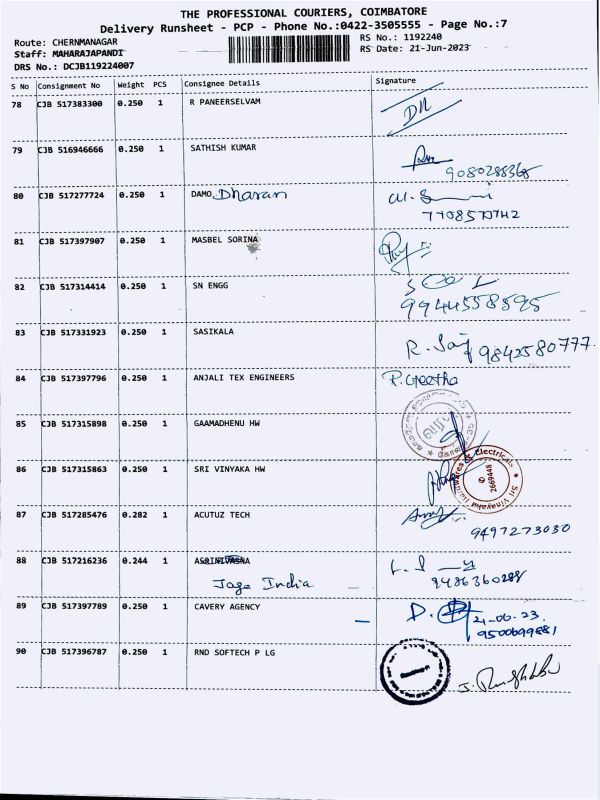 THE PROFESSIONAL COURIERS, COIMBATORE
Delivery Runsheet - PCP - Phone No.:0422-3505555 - Page No.:7
Route: CHERNMANAGAR
RS No.: 1192240
Staff: MAHARAJAPANDI
RS Date: 21-Jun-2023
DRS No.: DCJB119224007
S No Consignment No Weight PCS Consignee Details Signature
78 CJB 517383300 0.250 1 R PANEERSELVAM
79 CJB 516946666 0.250 1 SATHISH KUMAR
9080288368
80 CJB 517277724 0.250 1 DAMO Dharan
81 CJB 517397907 0.250 1 MASBEL SORINA
82 CJB 517314414 0.250 1 SN ENGG
9944558595
83 CJB 517331923 0.250 1 SASIKALA
9842580777.
84 CJB 517397796 0.250 1 ANJALI TEX ENGINEERS P. Geetha
85 CJB 517315898 0.250 1 GAAMADHENU HW
86 CJB 517315863 0.250 1 SRI VINYAKA HW
2669448
87 CJB 517285476 0.282 1 ACUTUZ TECH
9497273030
88 CJB 517216236 0.244 1
Jage India
9486360288
89 CJB 517397789 0.250 1 CAVERY AGENCY D.
21-06-23
9500699881
90 CJB 517396787 0.250 1 RND SOFTECH P LG